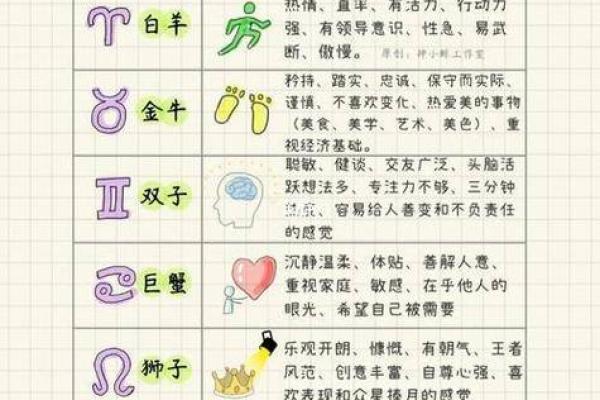 白羊
热情、直率、有活力、行动力
强、有领导意识、性急、易武
断、傲慢。 原创：神小鲜工作室
金牛
矜持、踏实、忠诚、保守而实际、
谨慎、不喜欢变化、热爱美的事物
（美食、美学、艺术、美色）、重
视经济基础。
双子
聪敏、健谈、交友广泛、头脑活
跃想法多、专注力不够、三分钟
容易给人善变和不负责任
的感觉
巨蟹
沉静温柔、体贴、善解人意、
重视家庭、敏感、在乎他人的
眼光、希望自己被需要
狮子
乐观开朗、慷慨、有朝气、王者
风范、创意丰富、自尊心强、喜
欢表现和众星捧月的感觉